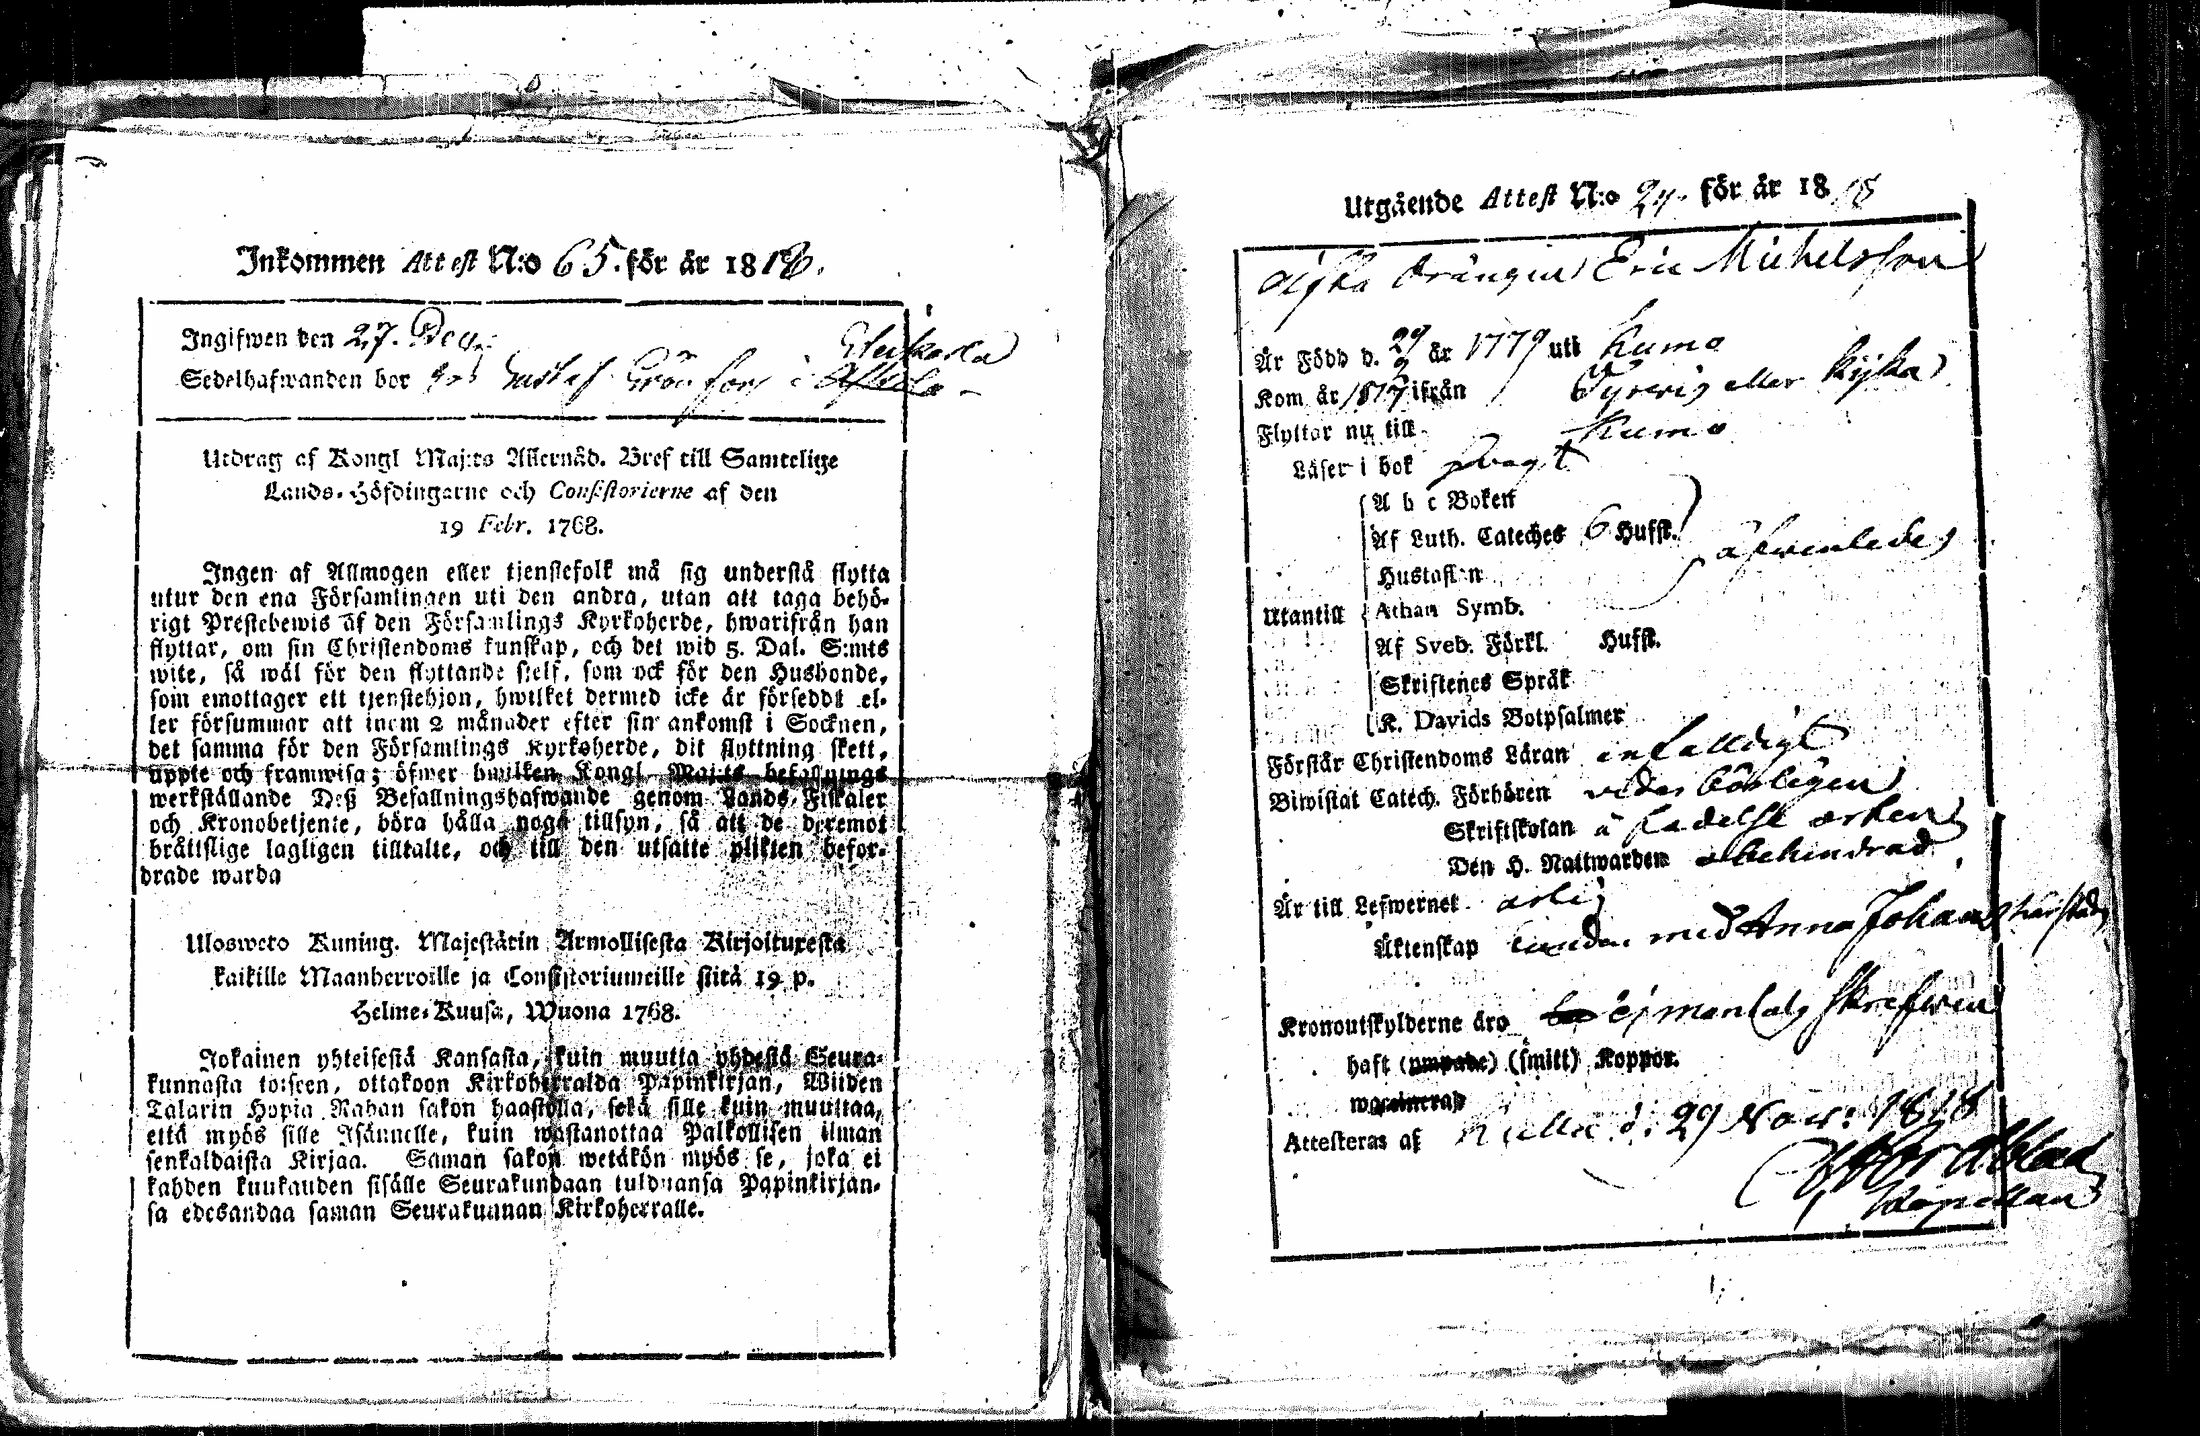 Inkommen Attest N:o 65. för år 1818.
Ingifwen den 27. Dec.
Sedelhafwanden bor hos Gustaf Grönfors i
Utdrag af Kongl Maj:ts Allernåd. Bref till Samtelige
Lands-Höfdingarne och Consistorierne af den
19 Febr. 1768.
Ingen af Allmogen eller tjenstefolk må sig understå flytta
utur den ena Församlingen uti den andra, utan att taga behö-
rigt Prestebewis af den Församlings Kyrkoherde, hwarifrån han
flyttar, om sin Christendoms kunskap, och det wid 5. Dal. S:mts
wite, så wäl för den flyttande sielf, som ock för den Husbonde,
som emottager ett tjenstehjon, hwilket dermed icke är förseddt el-
ler försummar att inom 2 månader efter sin ankomst i Socknen,
det samma för den Församlings Kyrkoherde, dit flyttning skett,
uppte och framwisa; öfwer hwilken Kongl Maj:ts befallnings
werkställande Deß Befallningshafwande genom Lands-Fiskaler
och Kronobetjente, böra hålla noga tillsyn, så att de deremot
bråttslige lagligen tilltalte, och till den utsatte plikten befor-
drade warda
Ulosweto Kuning. Majestätin Armollisesta Kirjoituxesta
kaikille Maanherroille ja Consistoriumeille siitä 19 p.
Helme-Kuusa, Wuona 1768.
Jokainen yhteisestä Kansasta, kuin muutta yhdestä Seura-
kunnasta toiseen, ottakoon Kirkoherralda Papinkirjan, Wiiden
Talarin Hopia Rahan sakon haastolla, sekä sille kuin muuttaa,
että myös sille Isännelle, kuin wastanottaa Palkollisen ilman
senkaldaista Kirjaa. Saman sakon wetäkön myös se, joka ei
kahden kuukauden sisälle Seurakundaan tulduansa Papinkirjan-
sa edesandaa saman Seurakunnan Kirkoherralle.
Utgående Attest N:o 24. för år 1818
Drängen Eric Michelsson
Är Född d. 29/2 år 1779 uti Kumo
Kom år 1817 ifrån Tyrwis eller Kijka
Flyttar nu till Kumo
Läser i bok
A b c Boken
Af Luth. Cateches 6 Hufst. äfwenledes
Hustaflan
Utantill Athan Symb.
Af Sveb. Förkl. Hufst.
Skriftenes Språk
K. Davids Botpsalmer
Förstår Christendoms Läran enfalldigt
Biwistat Catech. Förhören wederbörligen
Skriftskolan å födelse orten
Den H. Nattwarden obehindrad
Är till Lefwernet ärlig
Äktenskap bunden med Anna Johans
Kronoutskylderne äro ej mantals skrefwen
haft (ympade) (smitt) Koppor.
waccinerad
Attesteras af d. 29 Nov: 1818
Nordblad
Kapellan